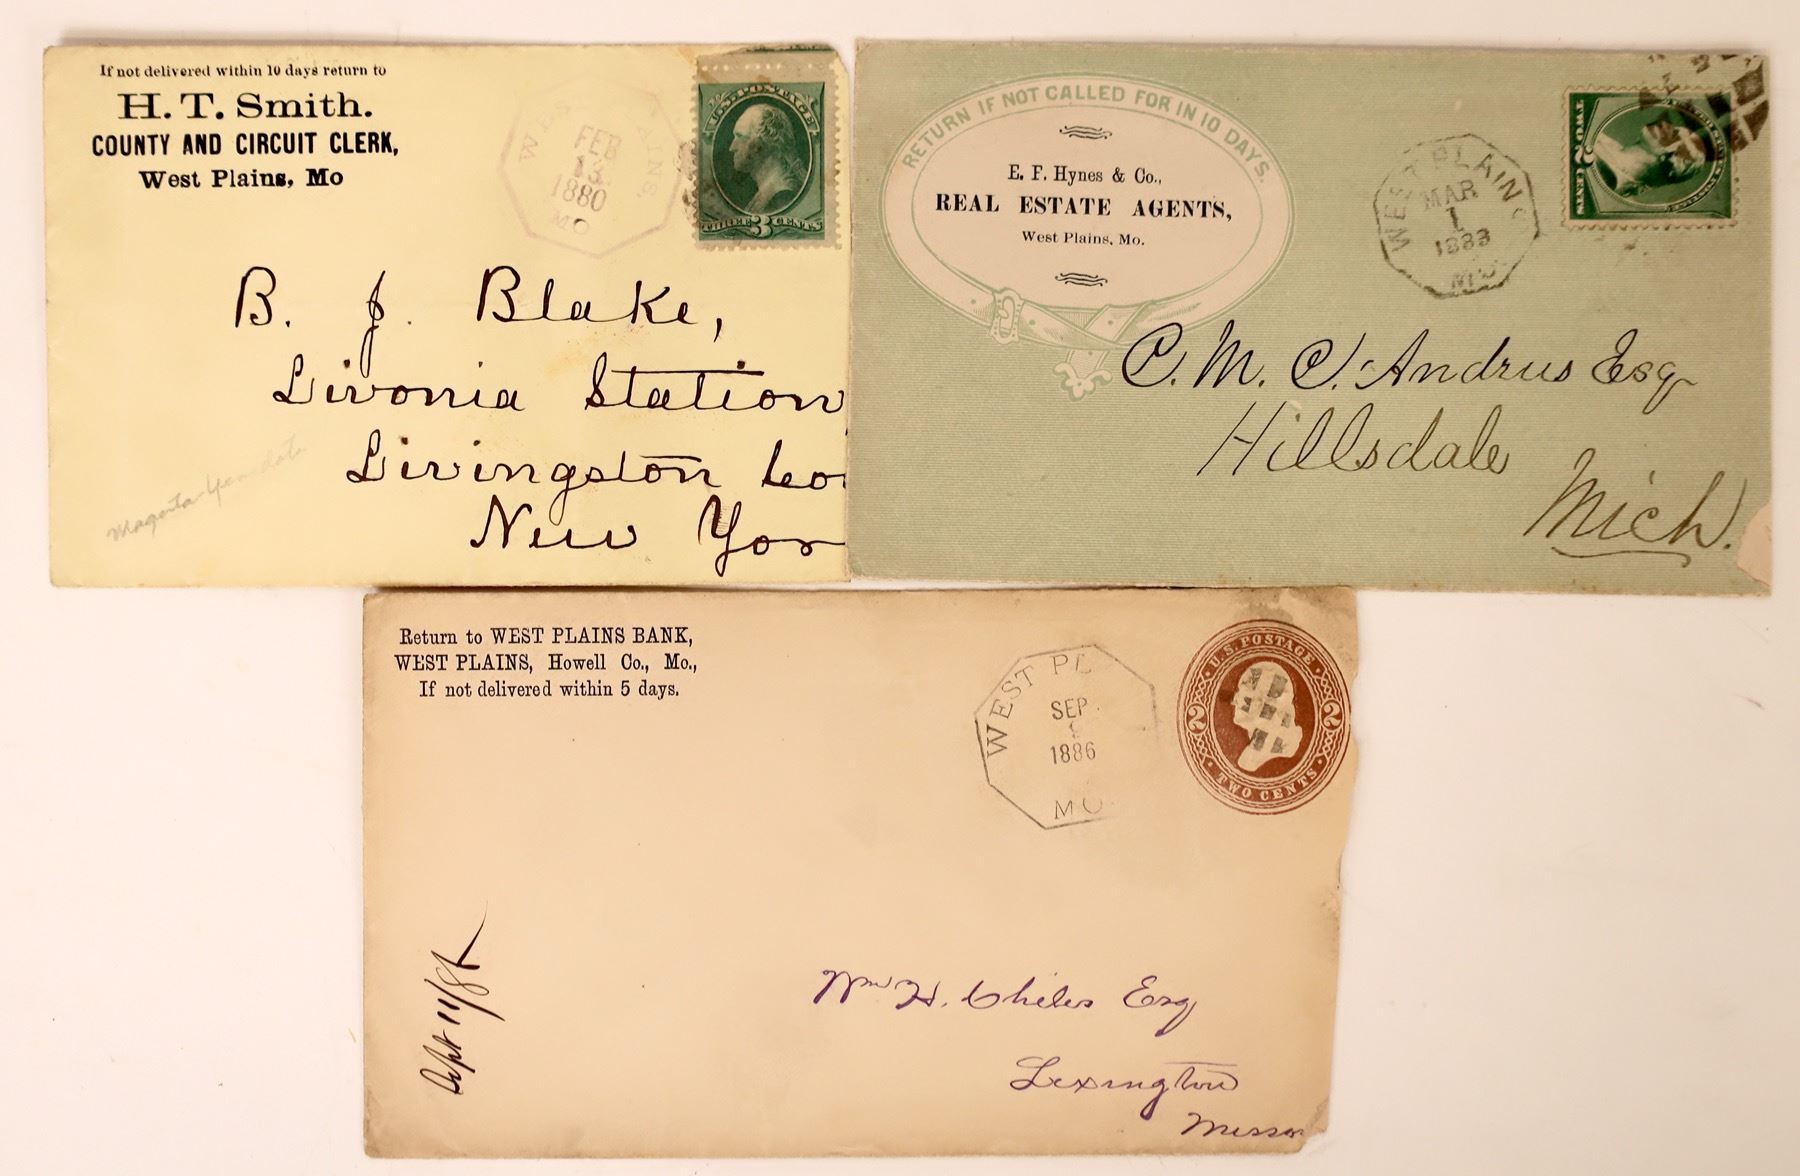 If not delivered within 10 days return to
H. T. Smith.
COUNTY AND CIRCUIT CLERK,
West Plains, Mo
FEB
13
1880
MO
U.S. POSTAGE
THREE 3 CENTS
B. J. Blake,
Livonia Station
Livingston Co
New Yor
RETURN IF NOT CALLED FOR IN 10 DAYS.
E. F. Hynes & Co.,
REAL ESTATE AGENTS,
West Plains, Mo.
WEST PLAINS
MAR
1
1883
MO.
TWO 2 CENTS
C. M. C. Andrus Esq
Hillsdale
Mich.
Return to WEST PLAINS BANK,
WEST PLAINS, Howell Co., Mo.,
If not delivered within 5 days.
WEST PL
SEP
9
1886
MO
U.S. POSTAGE
2 2
TWO CENTS
Wm H. Chiles Esq
Lexington
Missor